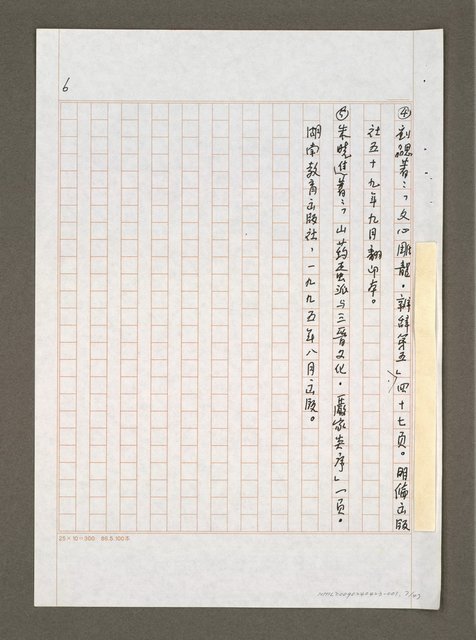 6
④劉勰著:「文心雕龍·辨騷第五」四十七頁。明倫出版
社五十九年九月翻印本。
⑤朱曉進著:「山药蛋派与三晉文化·嚴家炎序」一頁。
湖南教育出版社,一九九五年八月出版。
25×10=300 86.5.100本